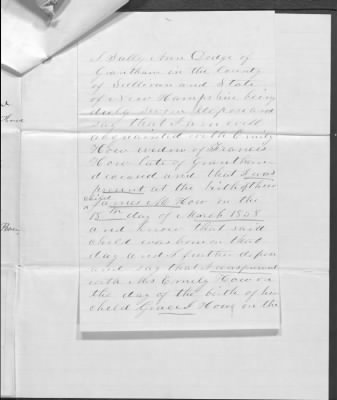 I Sally Ann Dodge of
Grantham in the County
of Sullivan and State
of New Hampshire being
duly sworn depose and
say that I am well
acquainted with Emily
How widow of Francis
How late of Grantham
deceased and that I was
present at the birth of their
child James M How on the
18th day of March 1858
and know that said
child was born on that
day and I further depose
and say that I was present
with Mrs Emily How on
the day of the birth of her
child Grace I How on the